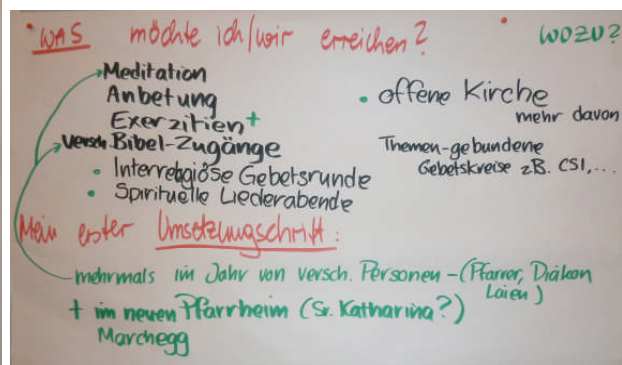 • WAS möchte ich/wir erreichen? • WOZU?
Meditation
Anbetung
Exerzitien +
versch. Bibel-Zugänge
• Interreligiöse Gebetsrunde
• Spirituelle Liederabende
• offene Kirche
mehr davon
Themen-gebundene
Gebetskreise zB. CSI,...
Mein erster Umsetzungschritt:
mehrmals im Jahr von versch. Personen - (Pfarrer, Diakon
Laien)
+ im neuen Pfarrheim (Sr. Katharina?)
Marchegg